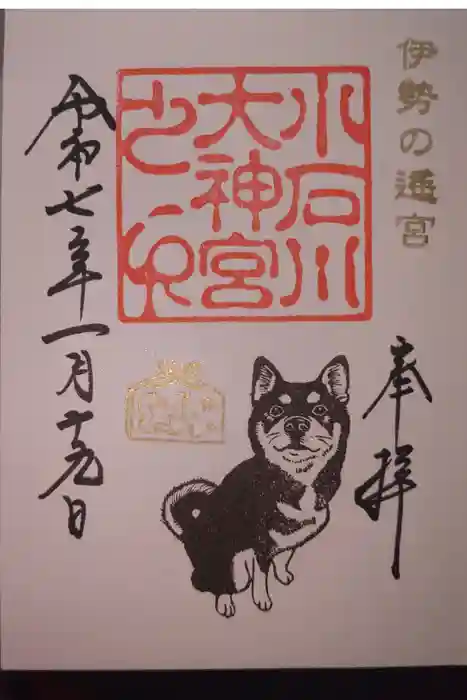 伊勢の遥宮
奉拝
小石川
大神宮
令和七年一月十九日